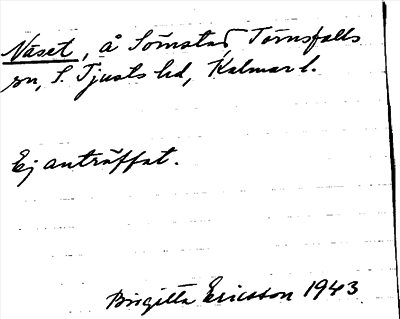 Näset, å Sömstad, Törnsfalls
sn, S. Tjusts hd, Kalmar l.
Ej anträffat.
Birgitta Ericsson 1943